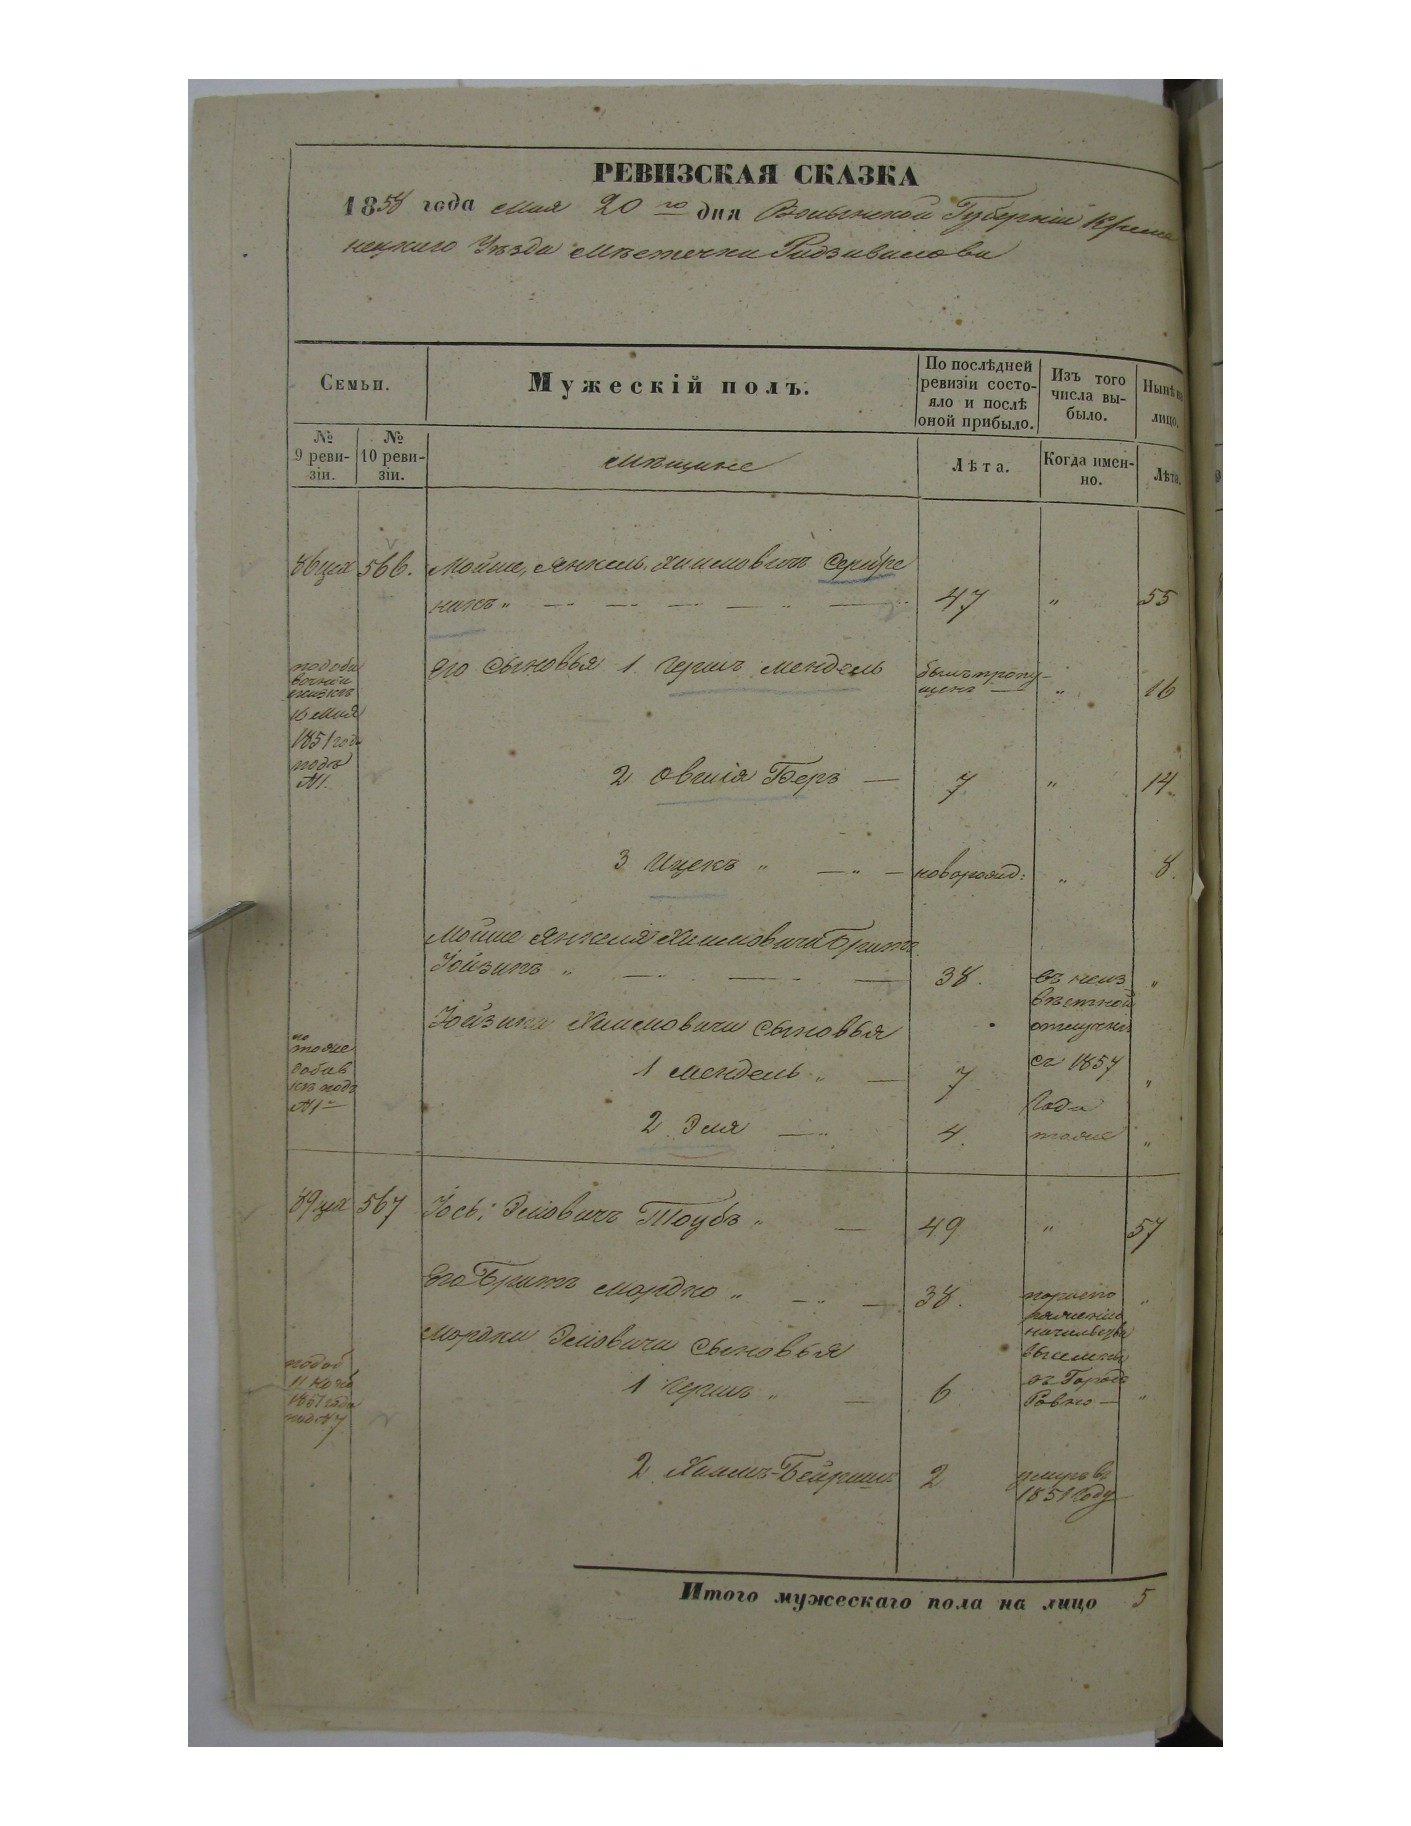 РЕВИЗСКАЯ СКАЗКА
1858 года мая 20го дня Волынской Губерніи Креме
нецкаго Уѣзда Мѣстечка Радзивилова
Семьи.
Мужескій полъ.
По послѣдней ревизіи состояло и послѣ оной прибыло.
Изъ того числа выбыло.
Нынѣ на лицо.
№ 9 ревизіи.
№ 10 ревизіи.
Мѣщане
Лѣта.
Когда именно.
Лѣта.
86 566. Мойше, Янкель Хаимовичъ Серебре
никъ „ 47 „ 55
по добавочной сказкѣ 16 мая 1851 года подъ №1.
Его Сыновья 1 Гершъ Мендель былъ пропущенъ „ 16
2 Овшія Беръ 7 „ 14
3 Ицекъ „ новорожд: „ 8.
Мойше Янкеля Хаимовича Братъ
Іойзипъ „ 38. въ неизвѣстной отлучкѣ съ 1857 года „
Хаимовича Сыновья
по тоже добав подъ №1
1 Мендель „ 7 „
2 Эля 4. тоже „
89 567 Іось; Эліовичъ Таубъ „ 49 „ 57
Его Братъ Мордко „ 38. „
начальства
въ Городъ Ровно
Мордки Эліовича Сыновья
1851 года
1 Гершъ „ 6 „
2 Хаимъ-Бейришъ 2 умеръ въ 1851 Году
Итого мужескаго пола на лицо 5